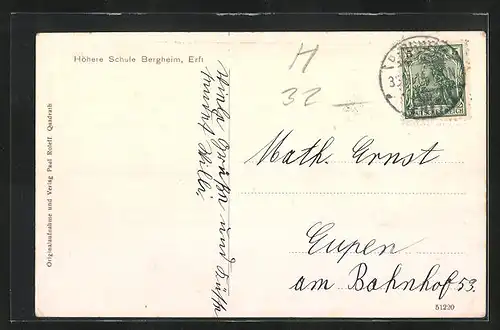 Höhere Schule Bergheim, Erft
H
32
Originalaufnahme und Verlag Paul Roleff Quadrath
Viele Grüße und Küsse
Willi
Math. Ernst
Eupen
am Bahnhof 53.
51220